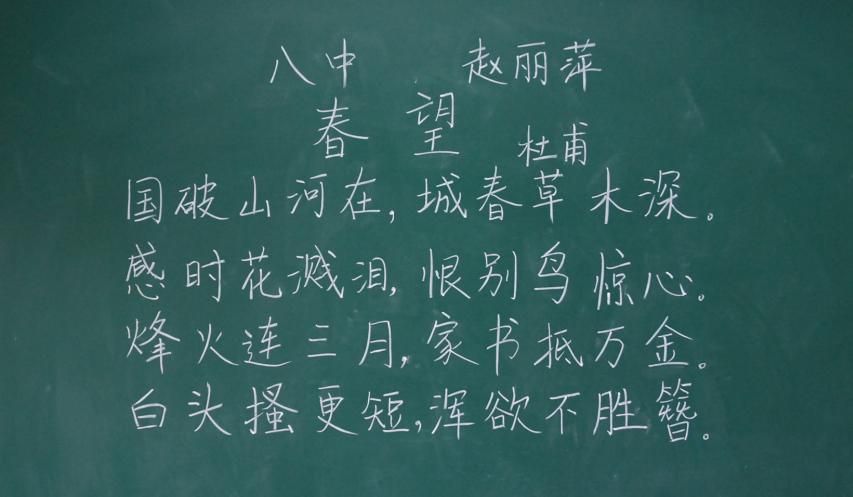 八中 赵丽萍
春望
杜甫
国破山河在，城春草木深。
感时花溅泪，恨别鸟惊心。
烽火连三月，家书抵万金。
白头搔更短，浑欲不胜簪。